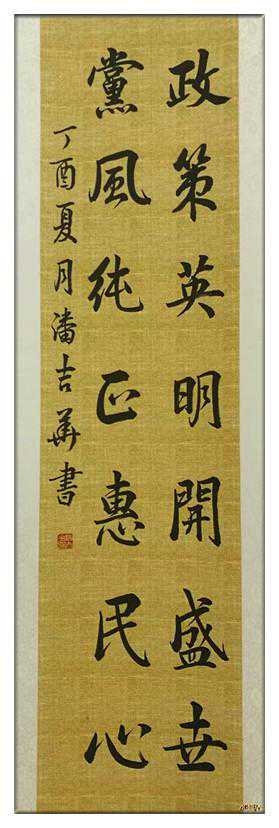 政策英明開盛世
黨風純正惠民心
丁酉夏月潘吉華書